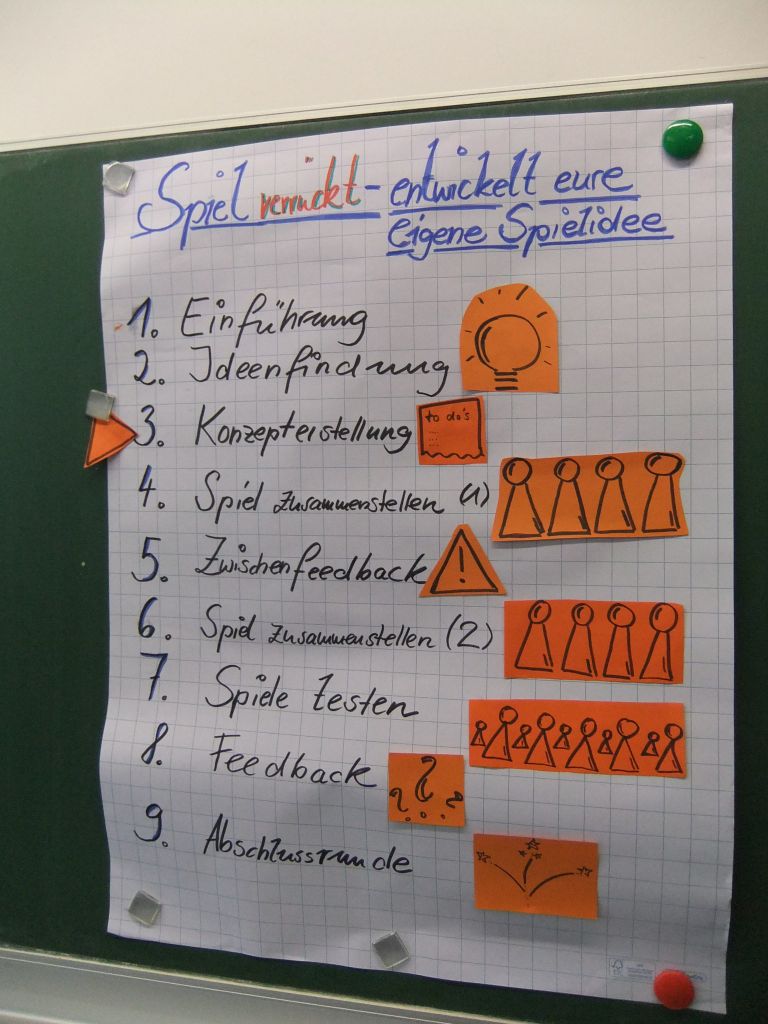 Spiel verrückt - entwickelt eure
eigene Spielidee
1. Einführung
2. Ideenfindung
3. Konzepterstellung
to do's
4. Spiel zusammenstellen (1)
5. Zwischenfeedback
!
6. Spiel zusammenstellen (2)
7. Spiele testen
8. Feedback
? ? ?
9. Abschlussrunde